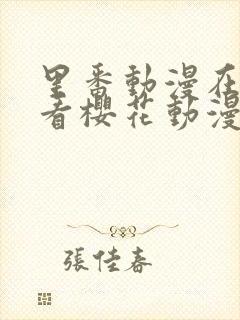 里番動漫在
看櫻花動漫
張佳春